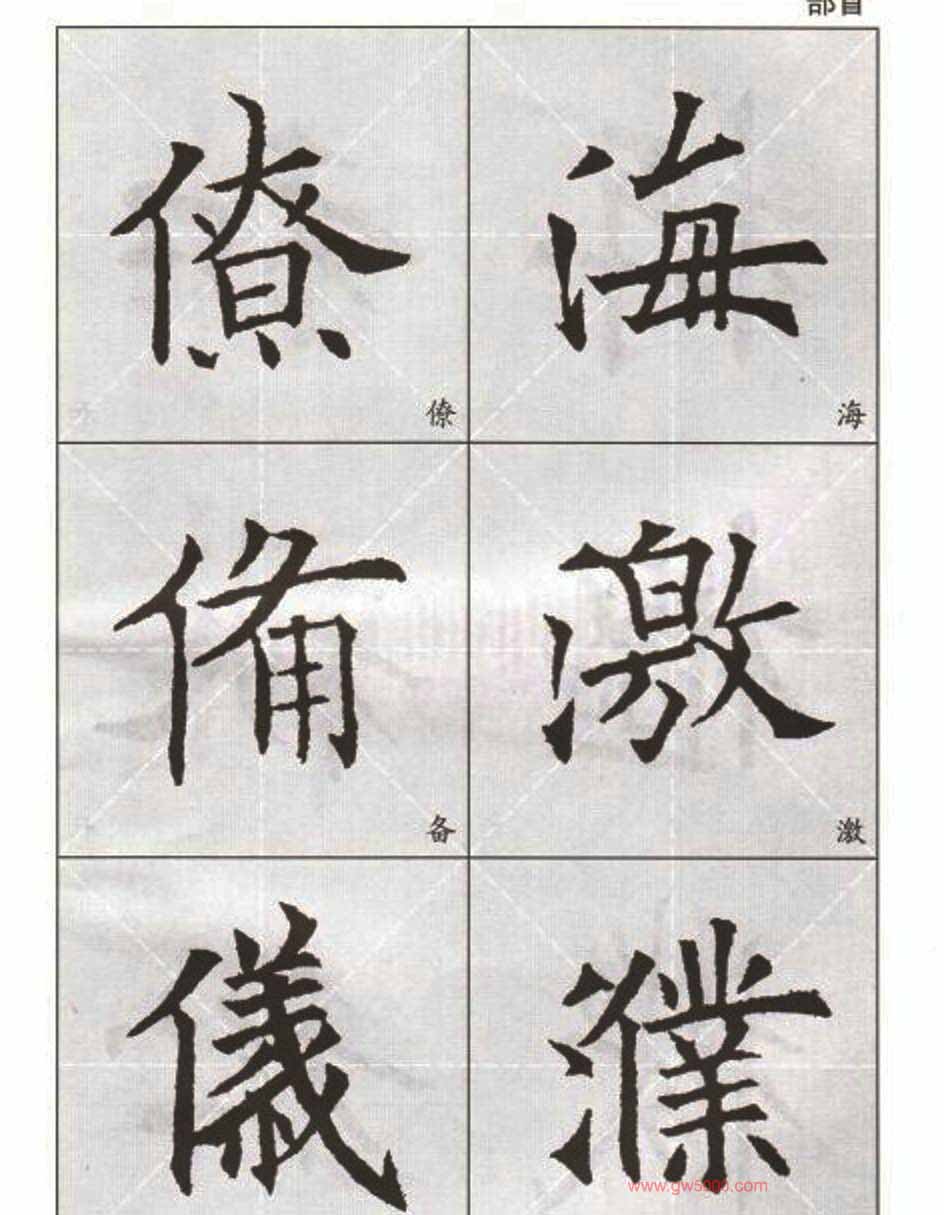 部首
僚 海
僚 海
備 激
备 激
儀 濮
www.gw5000.com